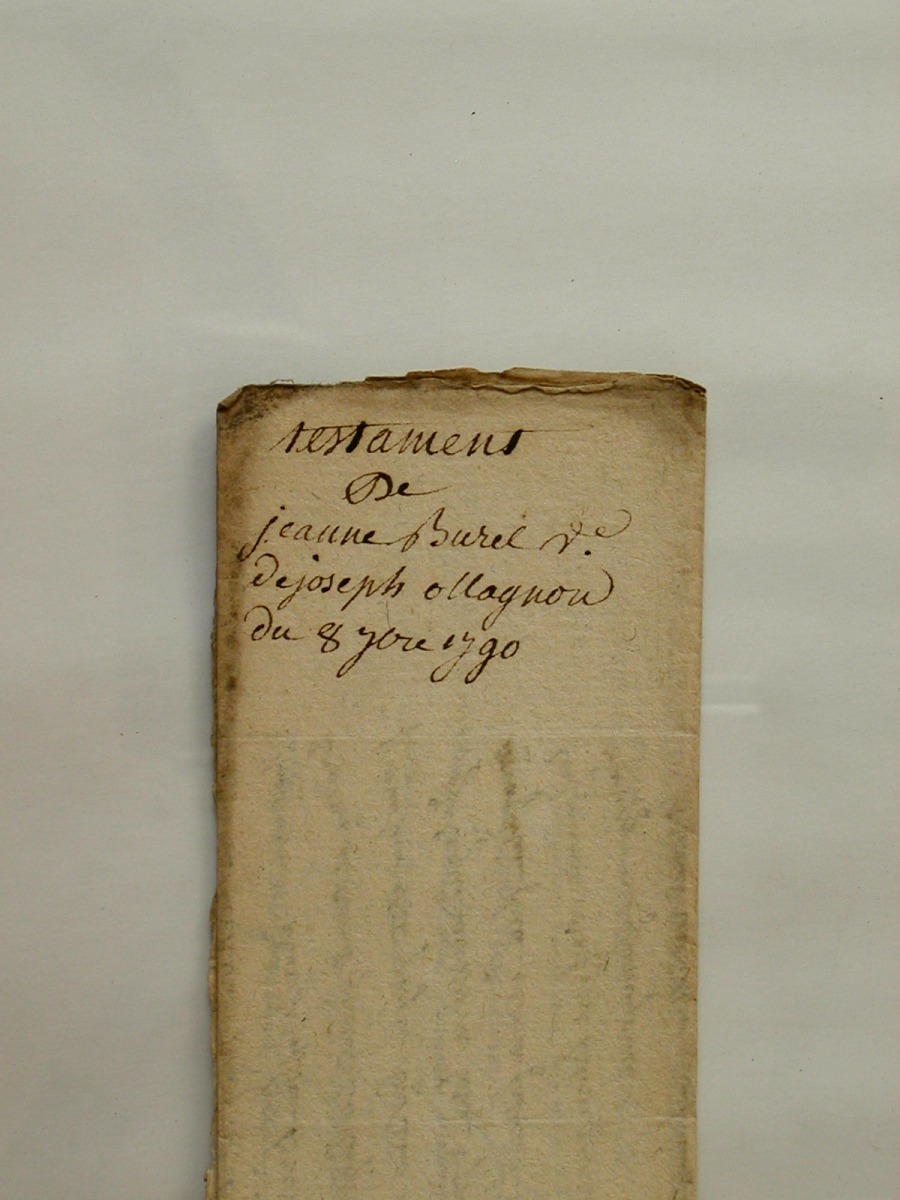 testament
De
jeanne Burel v.e
de joseph ollagnon
du 8 7bre 1790